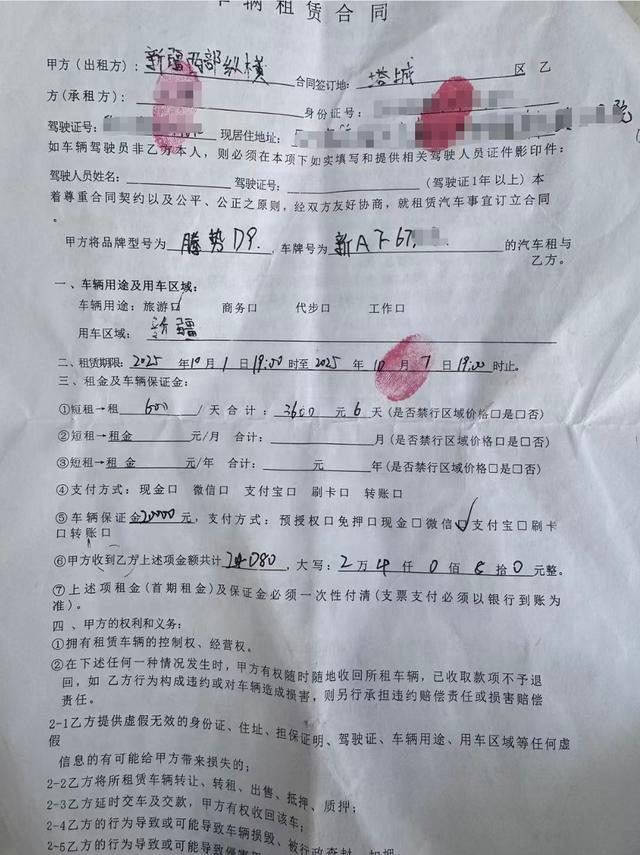 车辆租赁合同
甲方（出租方）：新疆西部纵横 合同签订地：塔城 区 乙
方(承租方)： 身份证号：
驾驶证号： 现居住地址：
如车辆驾驶员非乙方本人，则必须在本项下如实填写和提供相关驾驶人员证件影印件：
驾驶人员姓名： 驾驶证号： (驾驶证1年以上) 本
着尊重合同契约以及公平、公正之原则，经双方友好协商，就租赁汽车事宜订立合同
。
甲方将品牌型号为 腾势D9. 车牌号为 新A F67 的汽车租与
乙方。
一、车辆用途及用车区域：
车辆用途：旅游口 商务口 代步口 工作口
用车区域： 新疆
二、租赁期限：2025 年10 月 1 日19:00 时至 2025 年 10 月 7 日 19:00 时止。
三、租金及车辆保证金：
①短租→租 600 / 天 合计：3600 元 6 天 (是否禁行区域价格口是口否)
②短租→租金 元/月 合计： 月 (是否禁行区域价格口是口否)
③短租→租金 元/年 合计： 元 年(是否禁行区域价格口是口否)
④支付方式：现金口 微信口 支付宝口 刷卡口 转账口
⑤车辆保证金20000元，支付方式：预授权口免押口现金口微信口支付宝口刷卡
口转账口
⑥甲方收到乙方上述项金额共计 24080，大写：2 万 4 仟 0 佰 8 拾 0 元整。
⑦上述项租金(首期租金)及保证金必须一次性付清(支票支付必须以银行到账为
准)。
四、甲方的权利和义务：
①拥有租赁车辆的控制权、经营权。
②在下述任何一种情况发生时，甲方有权随时随地收回所租车辆，已收取款项不予退
回，如 乙方行为构成违约或对车辆造成损害，则另行承担违约赔偿责任或损害赔偿
责任。
2-1乙方提供虚假无效的身份证、住址、担保证明、驾驶证、车辆用途、用车区域等任何虚
假
信息的有可能给甲方带来损失的；
2-2乙方将所租赁车辆转让、转租、出售、抵押、质押；
2-3乙方延时交车及交款，甲方有权收回该车；
2-4乙方的行为导致或可能导致车辆损毁、被行政查封、扣押
2-5乙方的行为导致或可能导致